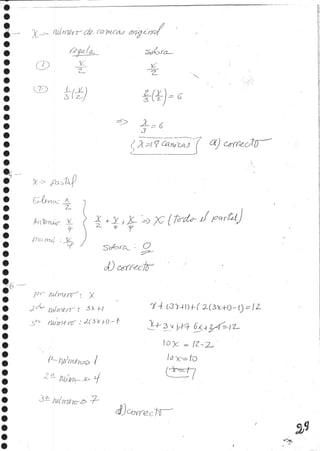 X → número de canicas original
regala sobra
① x/2 x/2
② 1/3 (x/2) 2/3 (x/2) = 6
⇒ x/3 = 6
X = 18 canicas a) correcto
X → pastel
Elena: x/2
Antonio x/4
mamá: x/4
x/2 + x/4 + x/4 ⇒ X (todo el pastel)
Sobra : 0
d) correcto
1er número : X
2do número : 3x+1
3er número : 2(3x+1)-1
x + (3x+1) + (2(3x+1)-1) = 12
x + 3x + 1 + 6x + 2 - 1 = 12
10x = 12-2
10x = 10
x = 1
1er número 1
2do núm → 4
3er número → 7
d) correcto
29